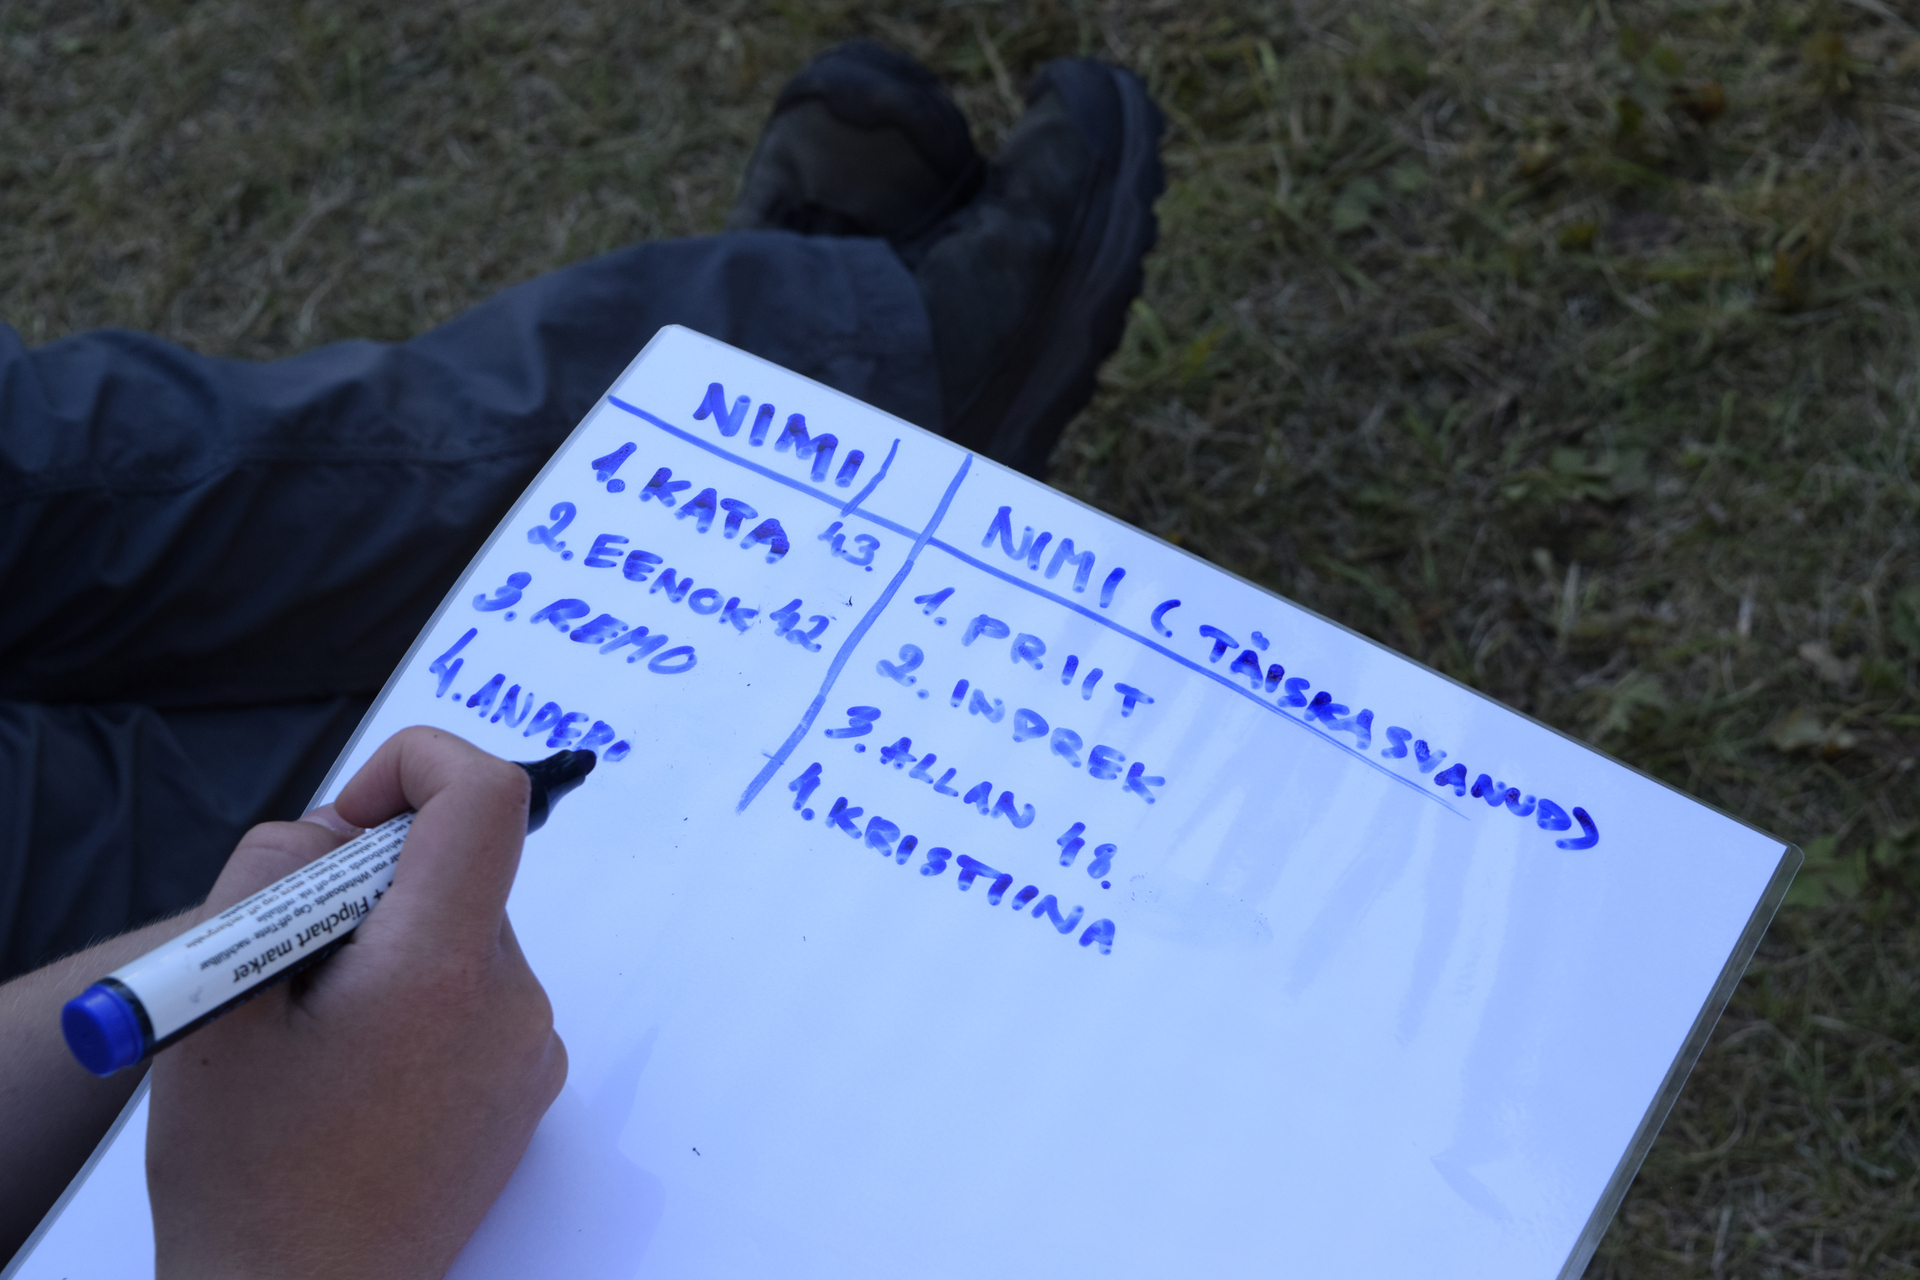 NIMI
1. KATA 43.
2. EENOK 42
3. REMO
4. ANDERO
NIMI (TÄISKASVANUD)
1. PRIIT
2. INDREK
3. ALLAN 48.
4. KRISTIINA
Flipchart marker